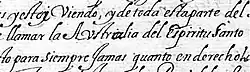 s, y estoy Viendo, y de toda esta parte del
llamar la Australia del Espiritu Santo
to para siempre Jamas quanto en derecho